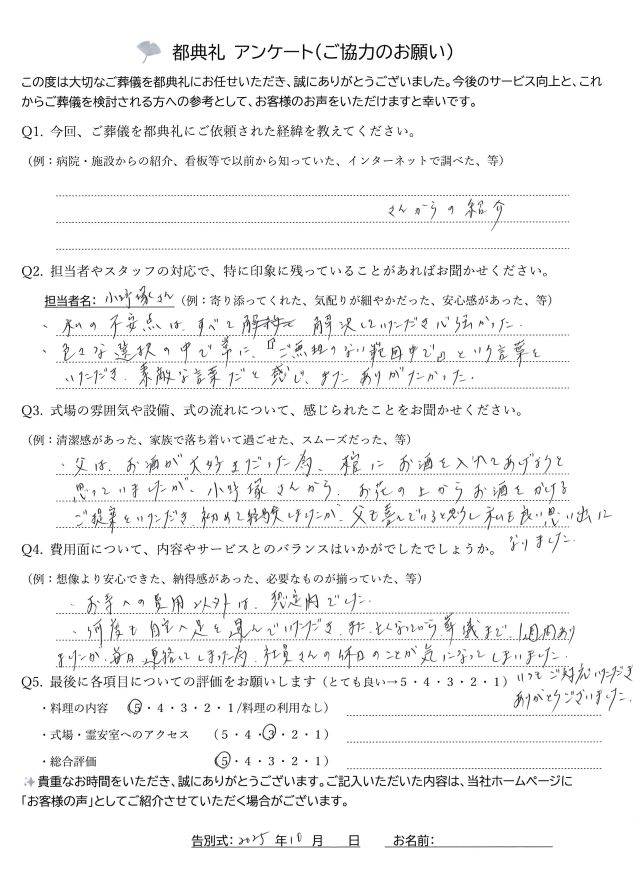 都典礼 アンケート(ご協力のお願い)
この度は大切なご葬儀を都典礼にお任せいただき、誠にありがとうございました。今後のサービス向上と、これ
からご葬儀を検討される方への参考として、お客様のお声をいただけますと幸いです。
Q1. 今回、ご葬儀を都典礼にご依頼された経緯を教えてください。
(例：病院・施設からの紹介、看板等で以前から知っていた、インターネットで調べた、等)
さんからの紹介
Q2. 担当者やスタッフの対応で、特に印象に残っていることがあればお聞かせください。
担当者名： 小野塚さん (例：寄り添ってくれた、気配りが細やかだった、安心感があった、等)
・私の不安点は、すべて 解決していただき心強かった.
・色々な選択の中で常に、『ご無理のない範囲中で』という言葉を
いただき、素敵な言葉だと感じ、またありがたかった.
Q3. 式場の雰囲気や設備、式の流れについて、感じられたことをお聞かせください。
(例：清潔感があった、家族で落ち着いて過ごせた、スムーズだった、等)
・父は、お酒が大好きだった為、棺にお酒を入れてあげようと
思っていましたが、小野塚さんから、お花の上からお酒をかける
ご提案をいただき、初めて経験しましたが、父も喜んでいると思うし私も良い思い出に
なりました.
Q4. 費用面について、内容やサービスとのバランスはいかがでしたでしょうか。
(例：想像より安心できた、納得感があった、必要なものが揃っていた、等)
・お寺への費用以外は、想定内でした.
・何度も自宅へ足を運んでいただき、また、亡くなってから葬儀まで、1週間あり
ましたが、毎日連絡してしまった為、社員さんの休日のことが気になってしまいました.
いつもご対応いただき
ありがとうございました.
Q5. 最後に各項目についての評価をお願いします (とても良い→5・4・3・2・1)
・料理の内容 (5・4・3・2・1/料理の利用なし)
・式場・霊安室へのアクセス (5・4・3・2・1)
・総合評価 (5・4・3・2・1)
✨貴重なお時間をいただき、誠にありがとうございます。ご記入いただいた内容は、当社ホームページに
「お客様の声」としてご紹介させていただく場合がございます。
告別式：2025 年 10 月 日 お名前：